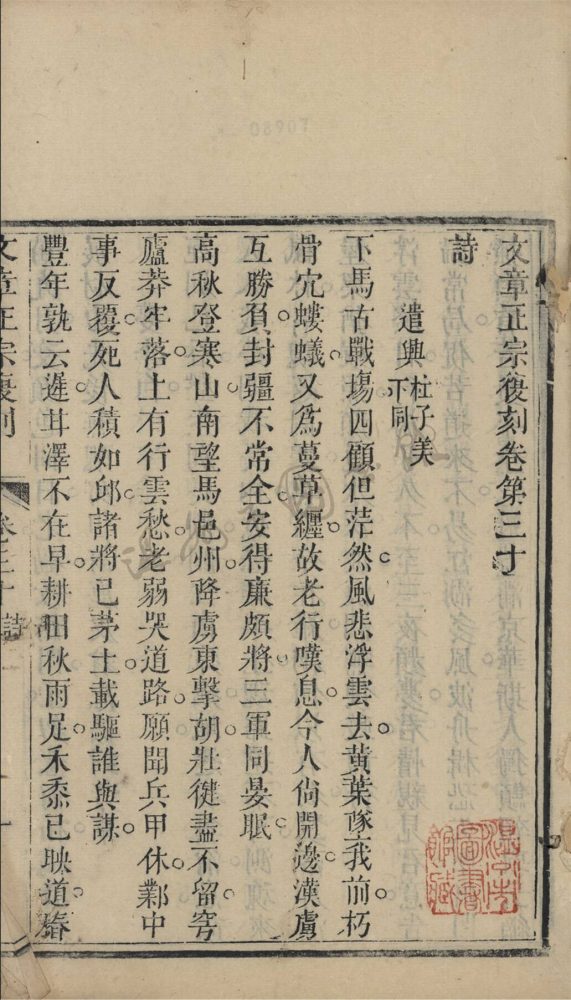 文章正宗復刻卷第三十
詩
遣興杜子美下同
下馬古戰場四顧但茫然風悲浮雲去黃葉墜我前朽
骨穴螻蟻又爲蔓草纏故老行嘆息今人尚開邊漢虜
互勝負封疆不常全安得廉頗將三軍同晏眠
高秋登寒山南望馬邑州降虜東擊胡壯健盡不留穹
廬莽牢落上有行雲愁老弱哭道路願聞兵甲休鄴中
事反覆死人積如邱諸將已茅土載驅誰與謀
豐年孰云遲甘澤不在早耕田秋雨足禾黍已映道春
文章正宗復刻 卷三十 詩
08907